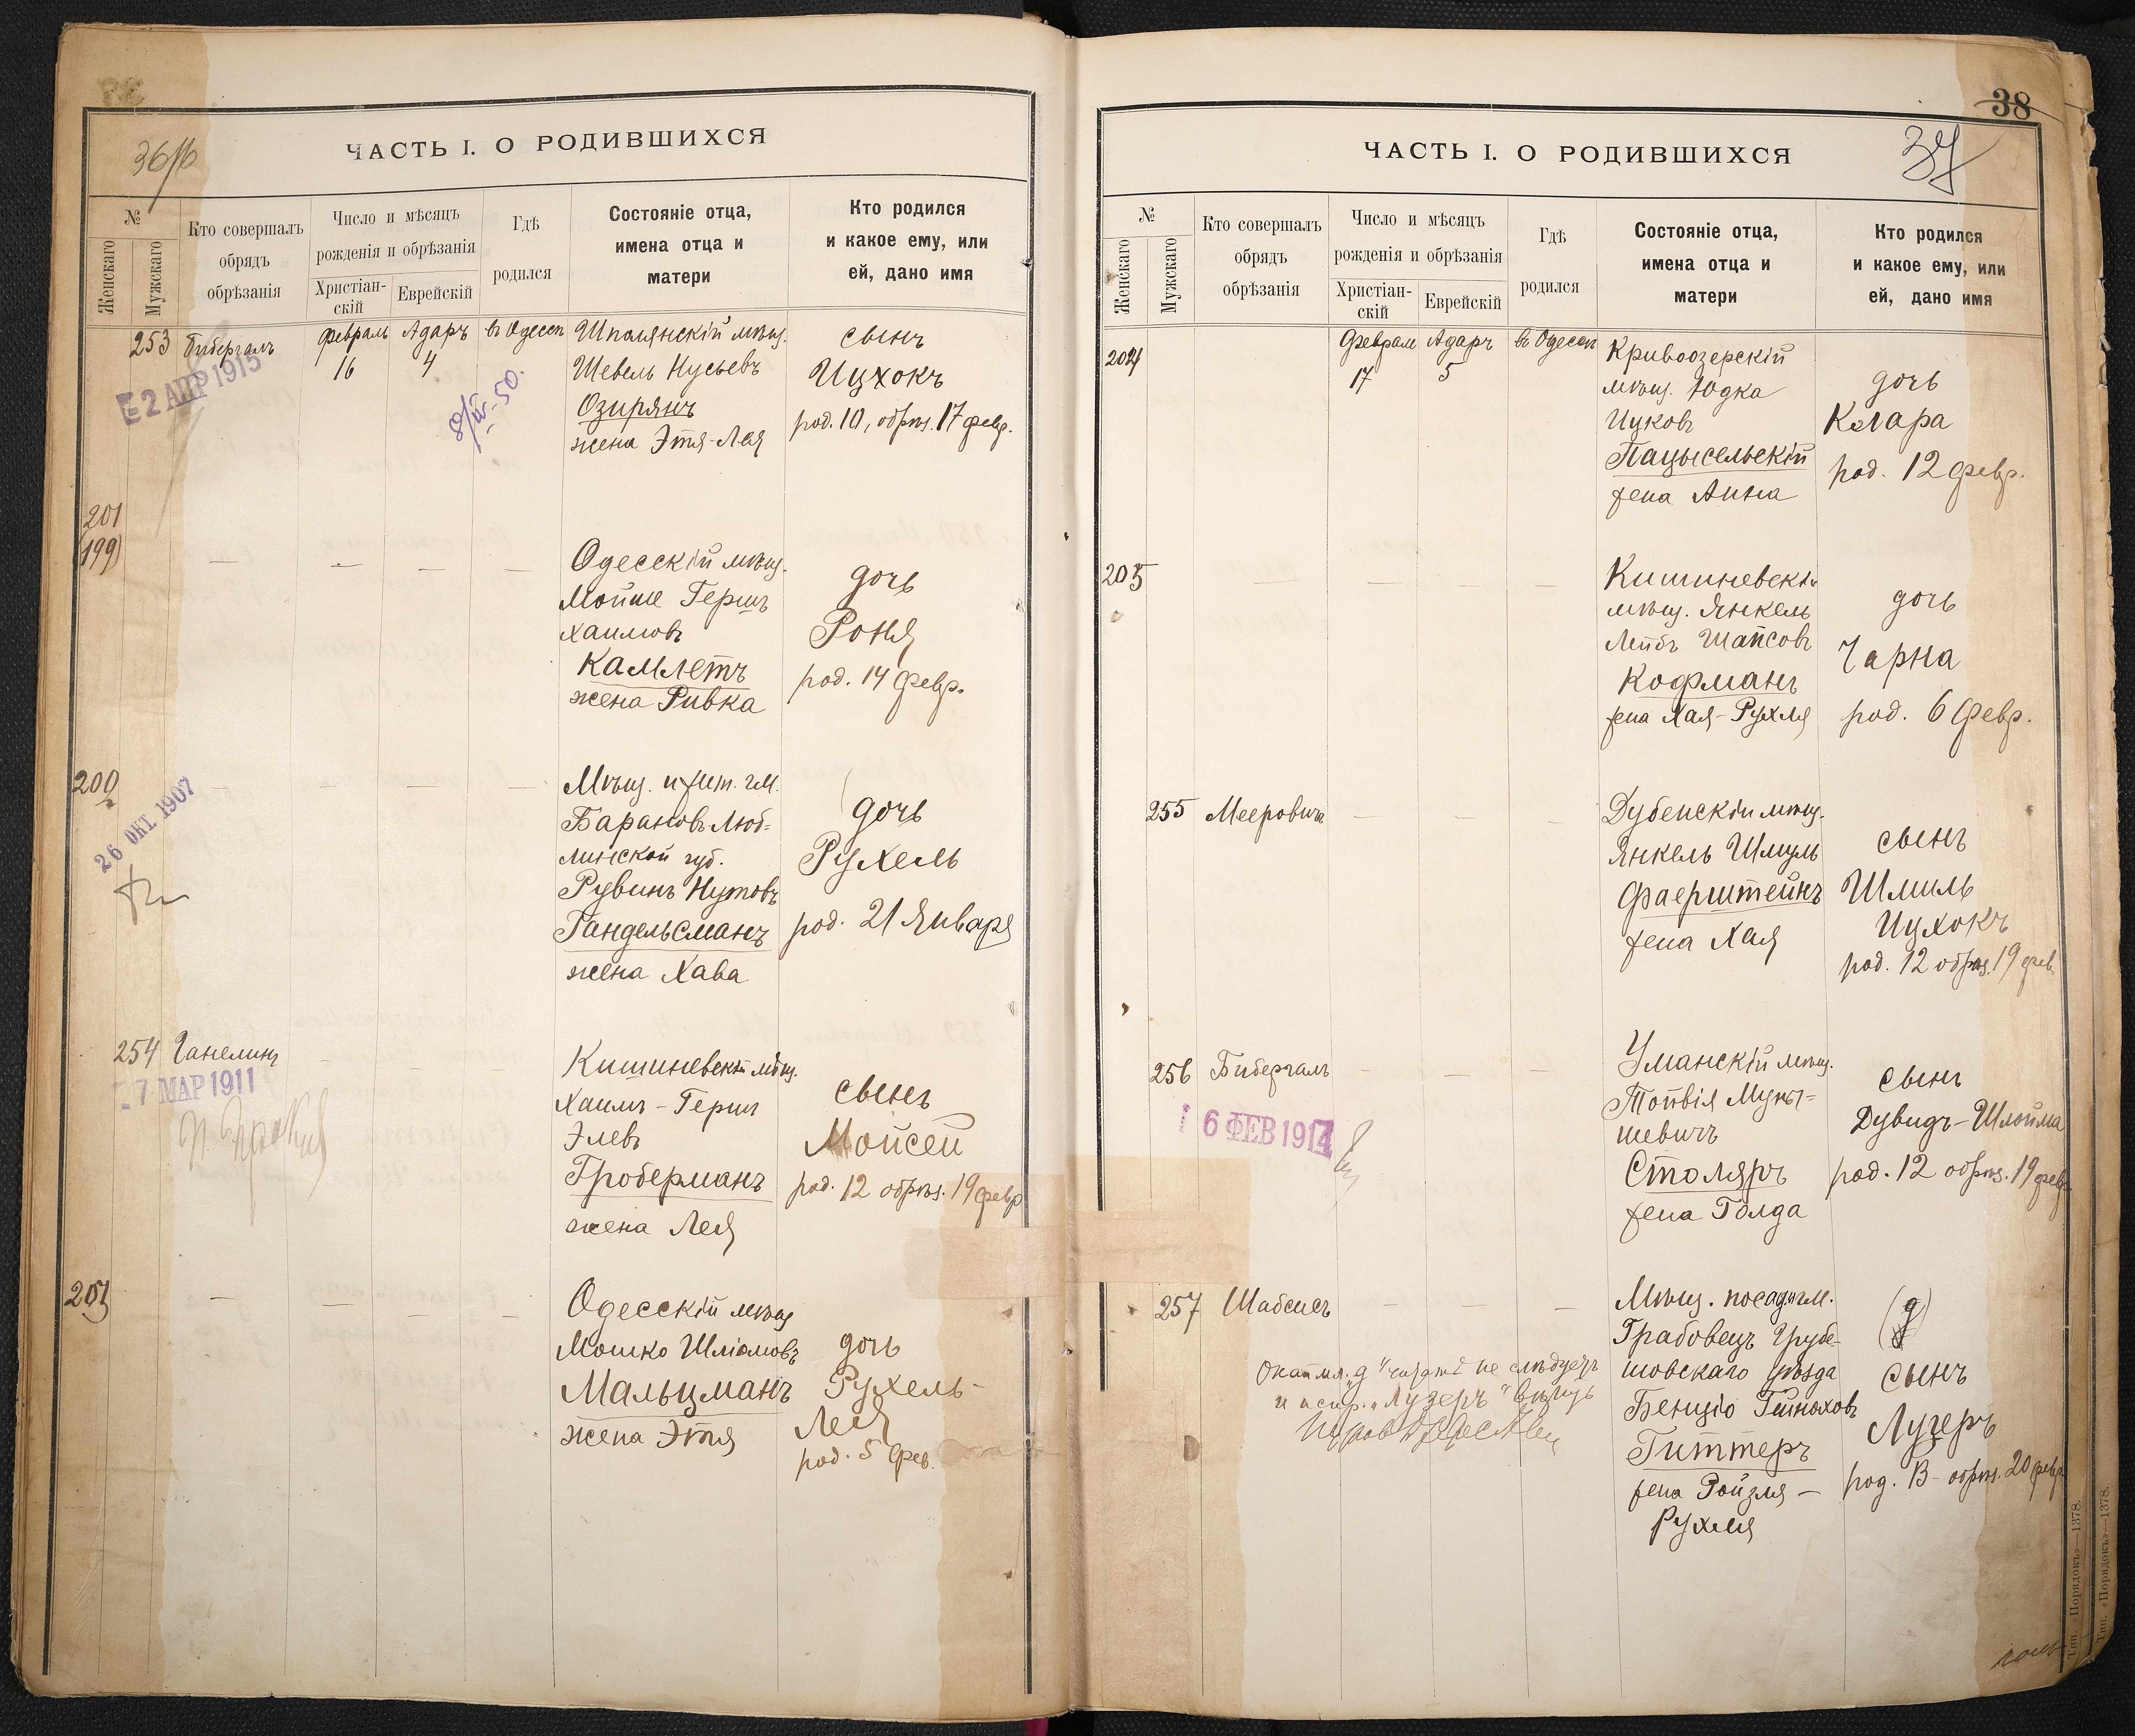 36/об
ЧАСТЬ I. О РОДИВШИХСЯ
№
Женскаго
Мужскаго
Кто совершалъ
обрядъ
обрѣзанія
Число и мѣсяцъ
рожденія и обрѣзанія
Христіан-
скій
Еврейскій
Гдѣ
родился
Состояніе отца,
имена отца и
матери
Кто родился
и какое ему, или
ей, дано имя
253
Бибергалъ
Февраль
16
Адаръ
4
въ Одессѣ
Шполянскій мѣщ.
Шевель Нусьевъ
Озирянъ
жена Этя-Лея
сынъ
Ицхокъ
род. 10, обрѣз. 17 февр.
2 АПР 1915
201
(199)
Одесскій мѣщ.
Мойше Гершъ
Хаимовъ
Камлетъ
жена Ривка
дочь
Роня
род. 14 февр.
200
26 ОКТ. 1907
Мѣщ. и жит. г.М.
Барановъ Люб-
линской губ.
Рувинъ Нутовъ
Гандельсманъ
жена Хава
дочь
Рухель
род. 21 Января
254
Ганелинъ
7 МАР 1911
Кишиневскій мѣщ.
Хаимъ-Герш
Элевъ
Гроберманъ
жена Лея
сынъ
Мойсей
род. 12 обрѣз. 19 февр
Одесскій мѣщ
Мошко Шліомовъ
Мальцманъ
жена Этя
дочь
Рухель-
Лея
род. 5 Фев.
38
37
ЧАСТЬ I. О РОДИВШИХСЯ
№
Женскаго
Мужскаго
Кто совершалъ
обрядъ
обрѣзанія
Число и мѣсяцъ
рожденія и обрѣзанія
Христіан-
скій
Еврейскій
Гдѣ
родился
Состояніе отца,
имена отца и
матери
Кто родился
и какое ему, или
ей, дано имя
204
Февраль
17
Адаръ
5
въ Одессѣ
Кривоозерскій
мѣщ. Юдка
Ицковъ
Пацысельскій
жена Анна
дочь
Клара
род. 12 февр.
205
Кишиневскій
мѣщ. Янкель
Лейбъ Шапсовъ
Кофманъ
жена Хая-Рухля
дочь
Чарна
род. 6 Февр.
255
Мееровичъ
Дубенскій мѣщ.
Янкель Шмуль
Фаерштейнъ
жена Хая
сынъ
Шмиль
Ицхокъ
род. 12 обрѣз. 19 фев.
256
Бибергалъ
6 ФЕВ 1914
Уманскій мѣщ.
Товія
шевичъ
Столяръ
жена Голда
сынъ
Дувидъ-Шлойма
род. 12 обрѣз. 19 февр
257
Шабсисъ
Мѣщ. посада г.М.
Грабовецъ Грубе-
шовскаго уѣзда
Бенціо
Гиттеръ
жена Ройзля-
Рухля
(д)
сынъ
Лузеръ
род. 13 обрѣз. 20 февр
не слѣдуетъ
и испр. "Лузеръ" вѣрить
Тип. «Порядокъ»—1378.
Тип. «Порядокъ»—1378.